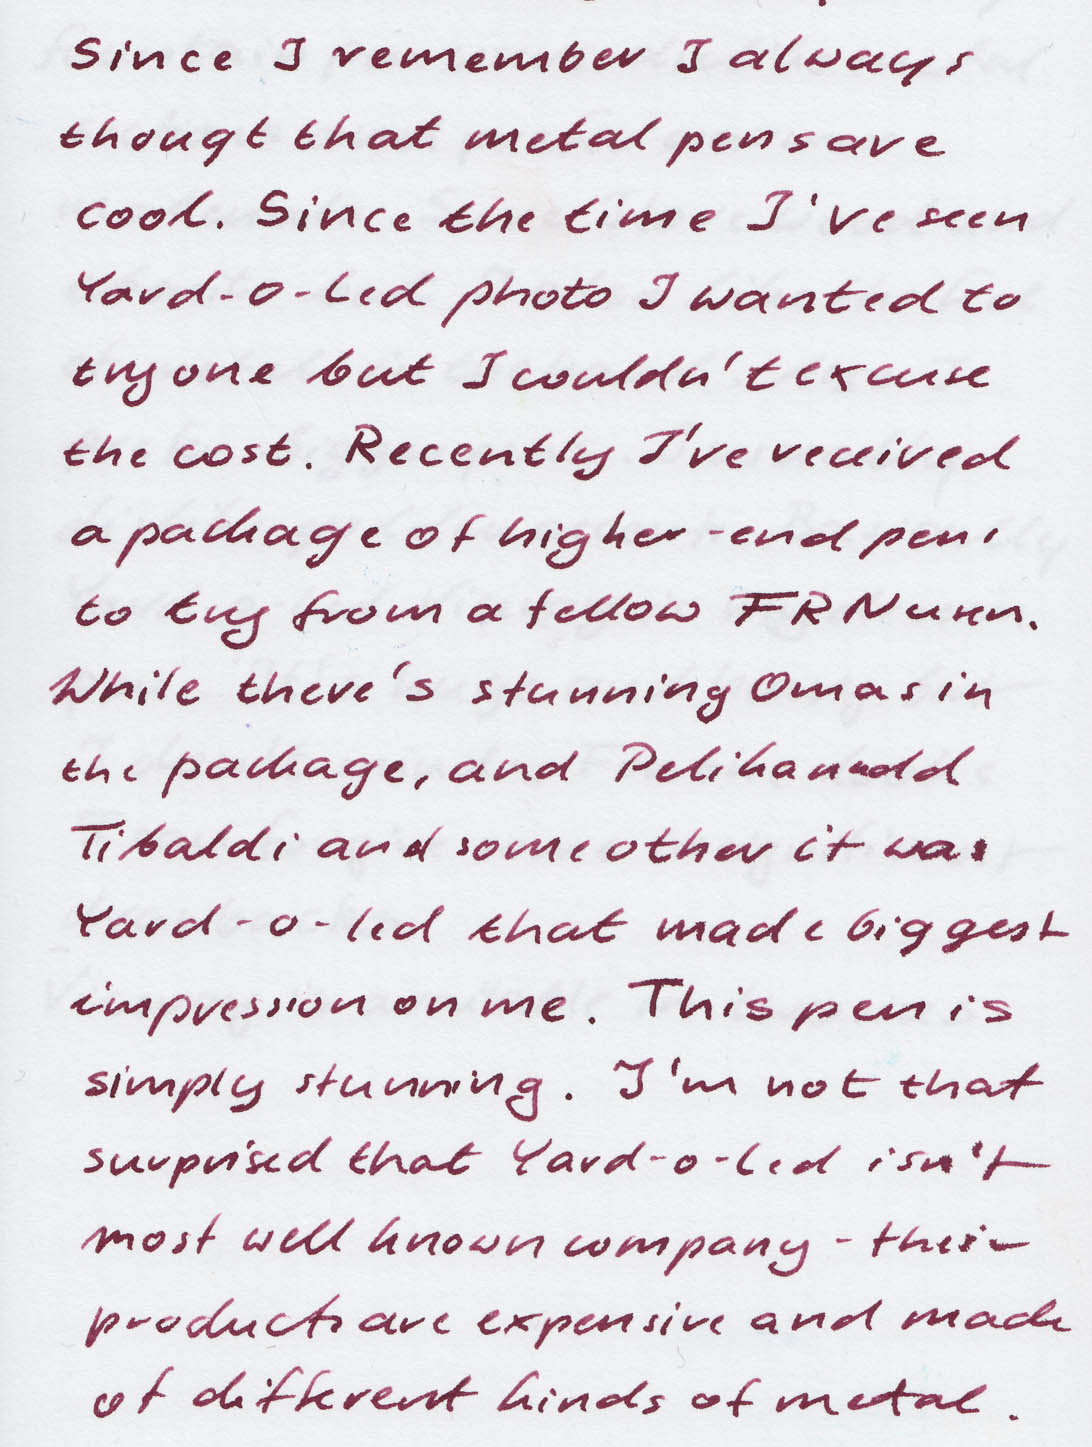 Since I remember I always
thougt that metal pens are
cool. Since the time I've seen
Yard-o-Led photo I wanted to
try one but I couldn't excuse
the cost. Recently I've received
a package of higher-end pens
to try from a fellow FRN user.
While there's stunning Omas in
the package, and Pelikan and
Tibaldi and some other it was
Yard-o-led that made biggest
impression on me. This pen is
simply stunning. I'm not that
surprised that Yard-o-Led isn't
most well known company - their
products are expensive and made
of different kinds of metal.